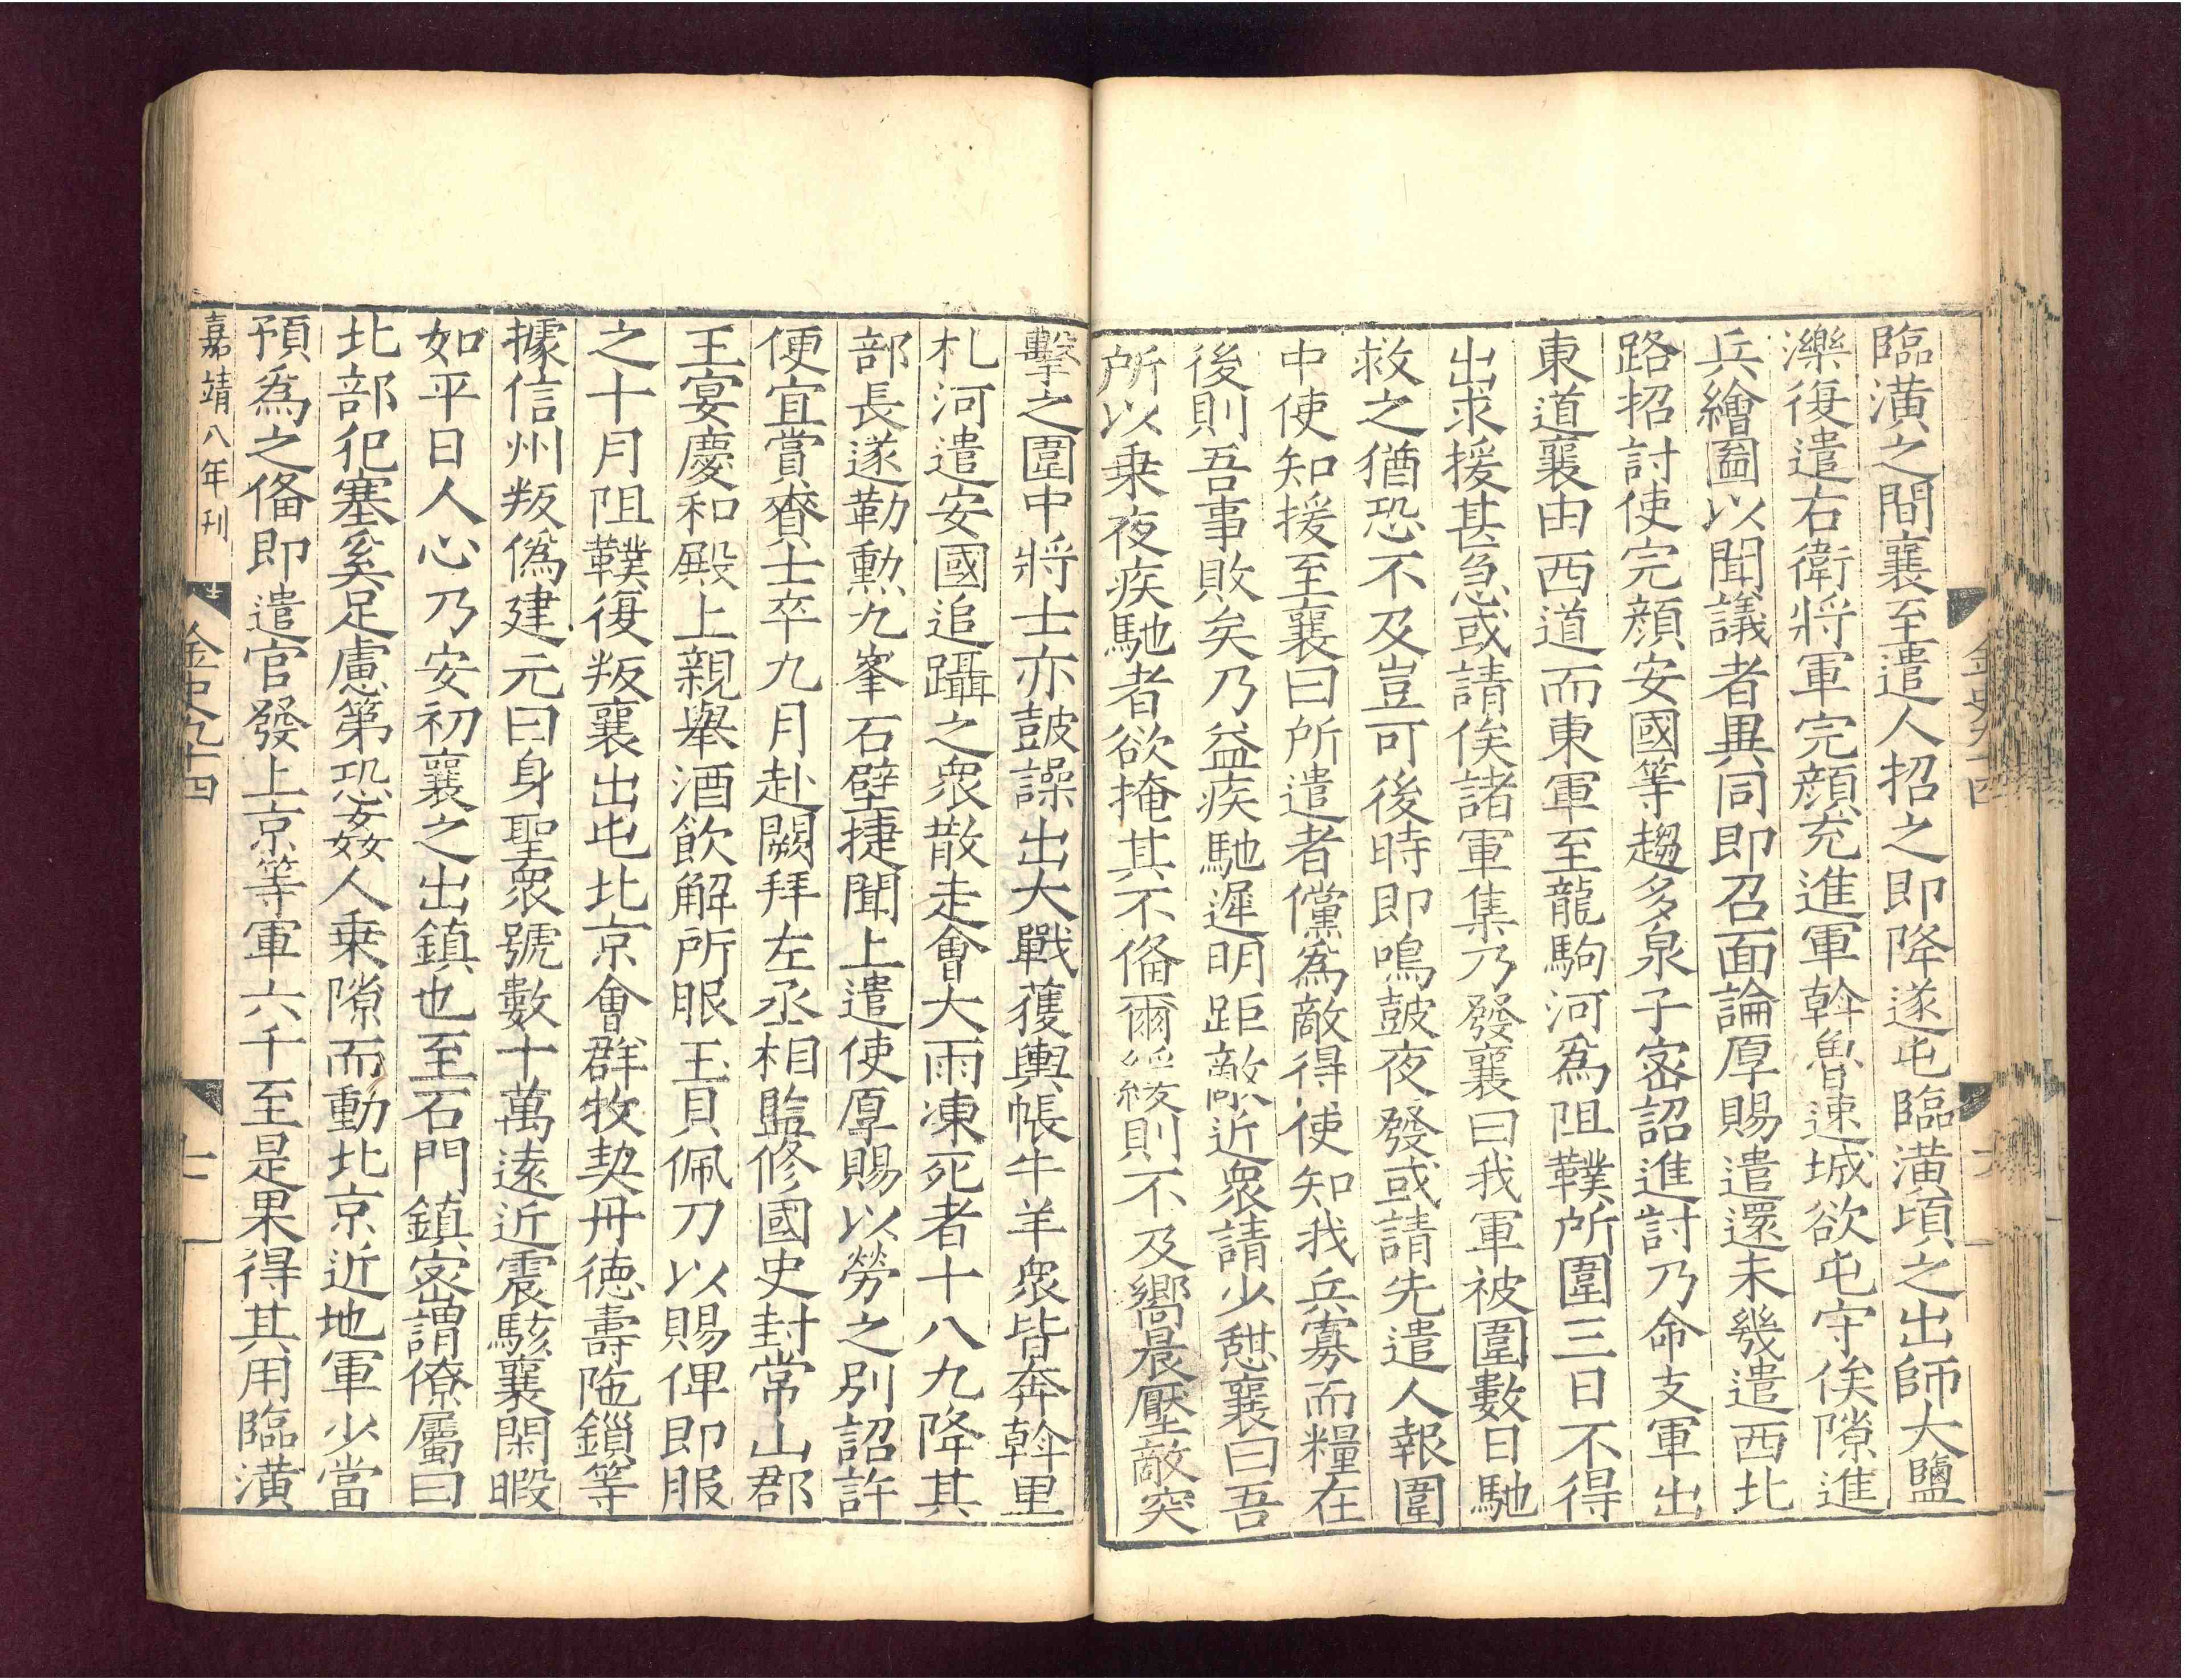 臨潢之間襄至遣人招之即降遂屯臨潢頃之出師大鹽
濼復遣右衛將軍完顏充進軍斡魯速城欲屯守俟隙進
兵繪圖以聞議者異同即召面論厚賜遣還未幾遣西北
路招討使完顏安國等趨多泉子宻詔進討乃命支軍出
東道襄由西道而東軍至龍駒河為阻䪁所圍三日不得
出求援甚急或請俟諸軍集乃發襄曰我軍被圍數日馳
救之猶恐不及豈可後時即鳴鼓夜發或請先遣人報圍
中使知援至襄曰所遣者儻為敵得使知我兵寡而糧在
後則吾事敗矣乃益疾馳遲明距敵近衆請少憇襄曰吾
所以乗夜疾馳者欲掩其不俻爾緩則不及嚮晨壓敵突
擊之圍中將士亦鼓譟出大戰獲輿帳牛羊衆皆奔斡里
札河遣安國追躡之衆散走會大雨凍死者十八九降其
部長遂勒勲九峯石壁捷聞上遣使厚賜以勞之別詔許
便宜賞賚士卒九月赴闕拜左丞相監修國史封常山郡
王宴慶和殿上親舉酒飲解所服玉具佩刀以賜俾即服
之十月阻䪁復叛襄出屯北京會群牧契丹徳壽陁鎻等
據信州叛偽建元曰身聖衆號數十萬逺近震駭襄閑暇
如平日人心乃安初襄之出鎮也至石門鎮宻謂僚屬曰
北部犯塞奚足慮第恐姦人乗隙而動北京近地軍少當
預為之俻即遣官發上京等軍六千至是果得其用臨潢
嘉靖八年刊
金史九十四
七